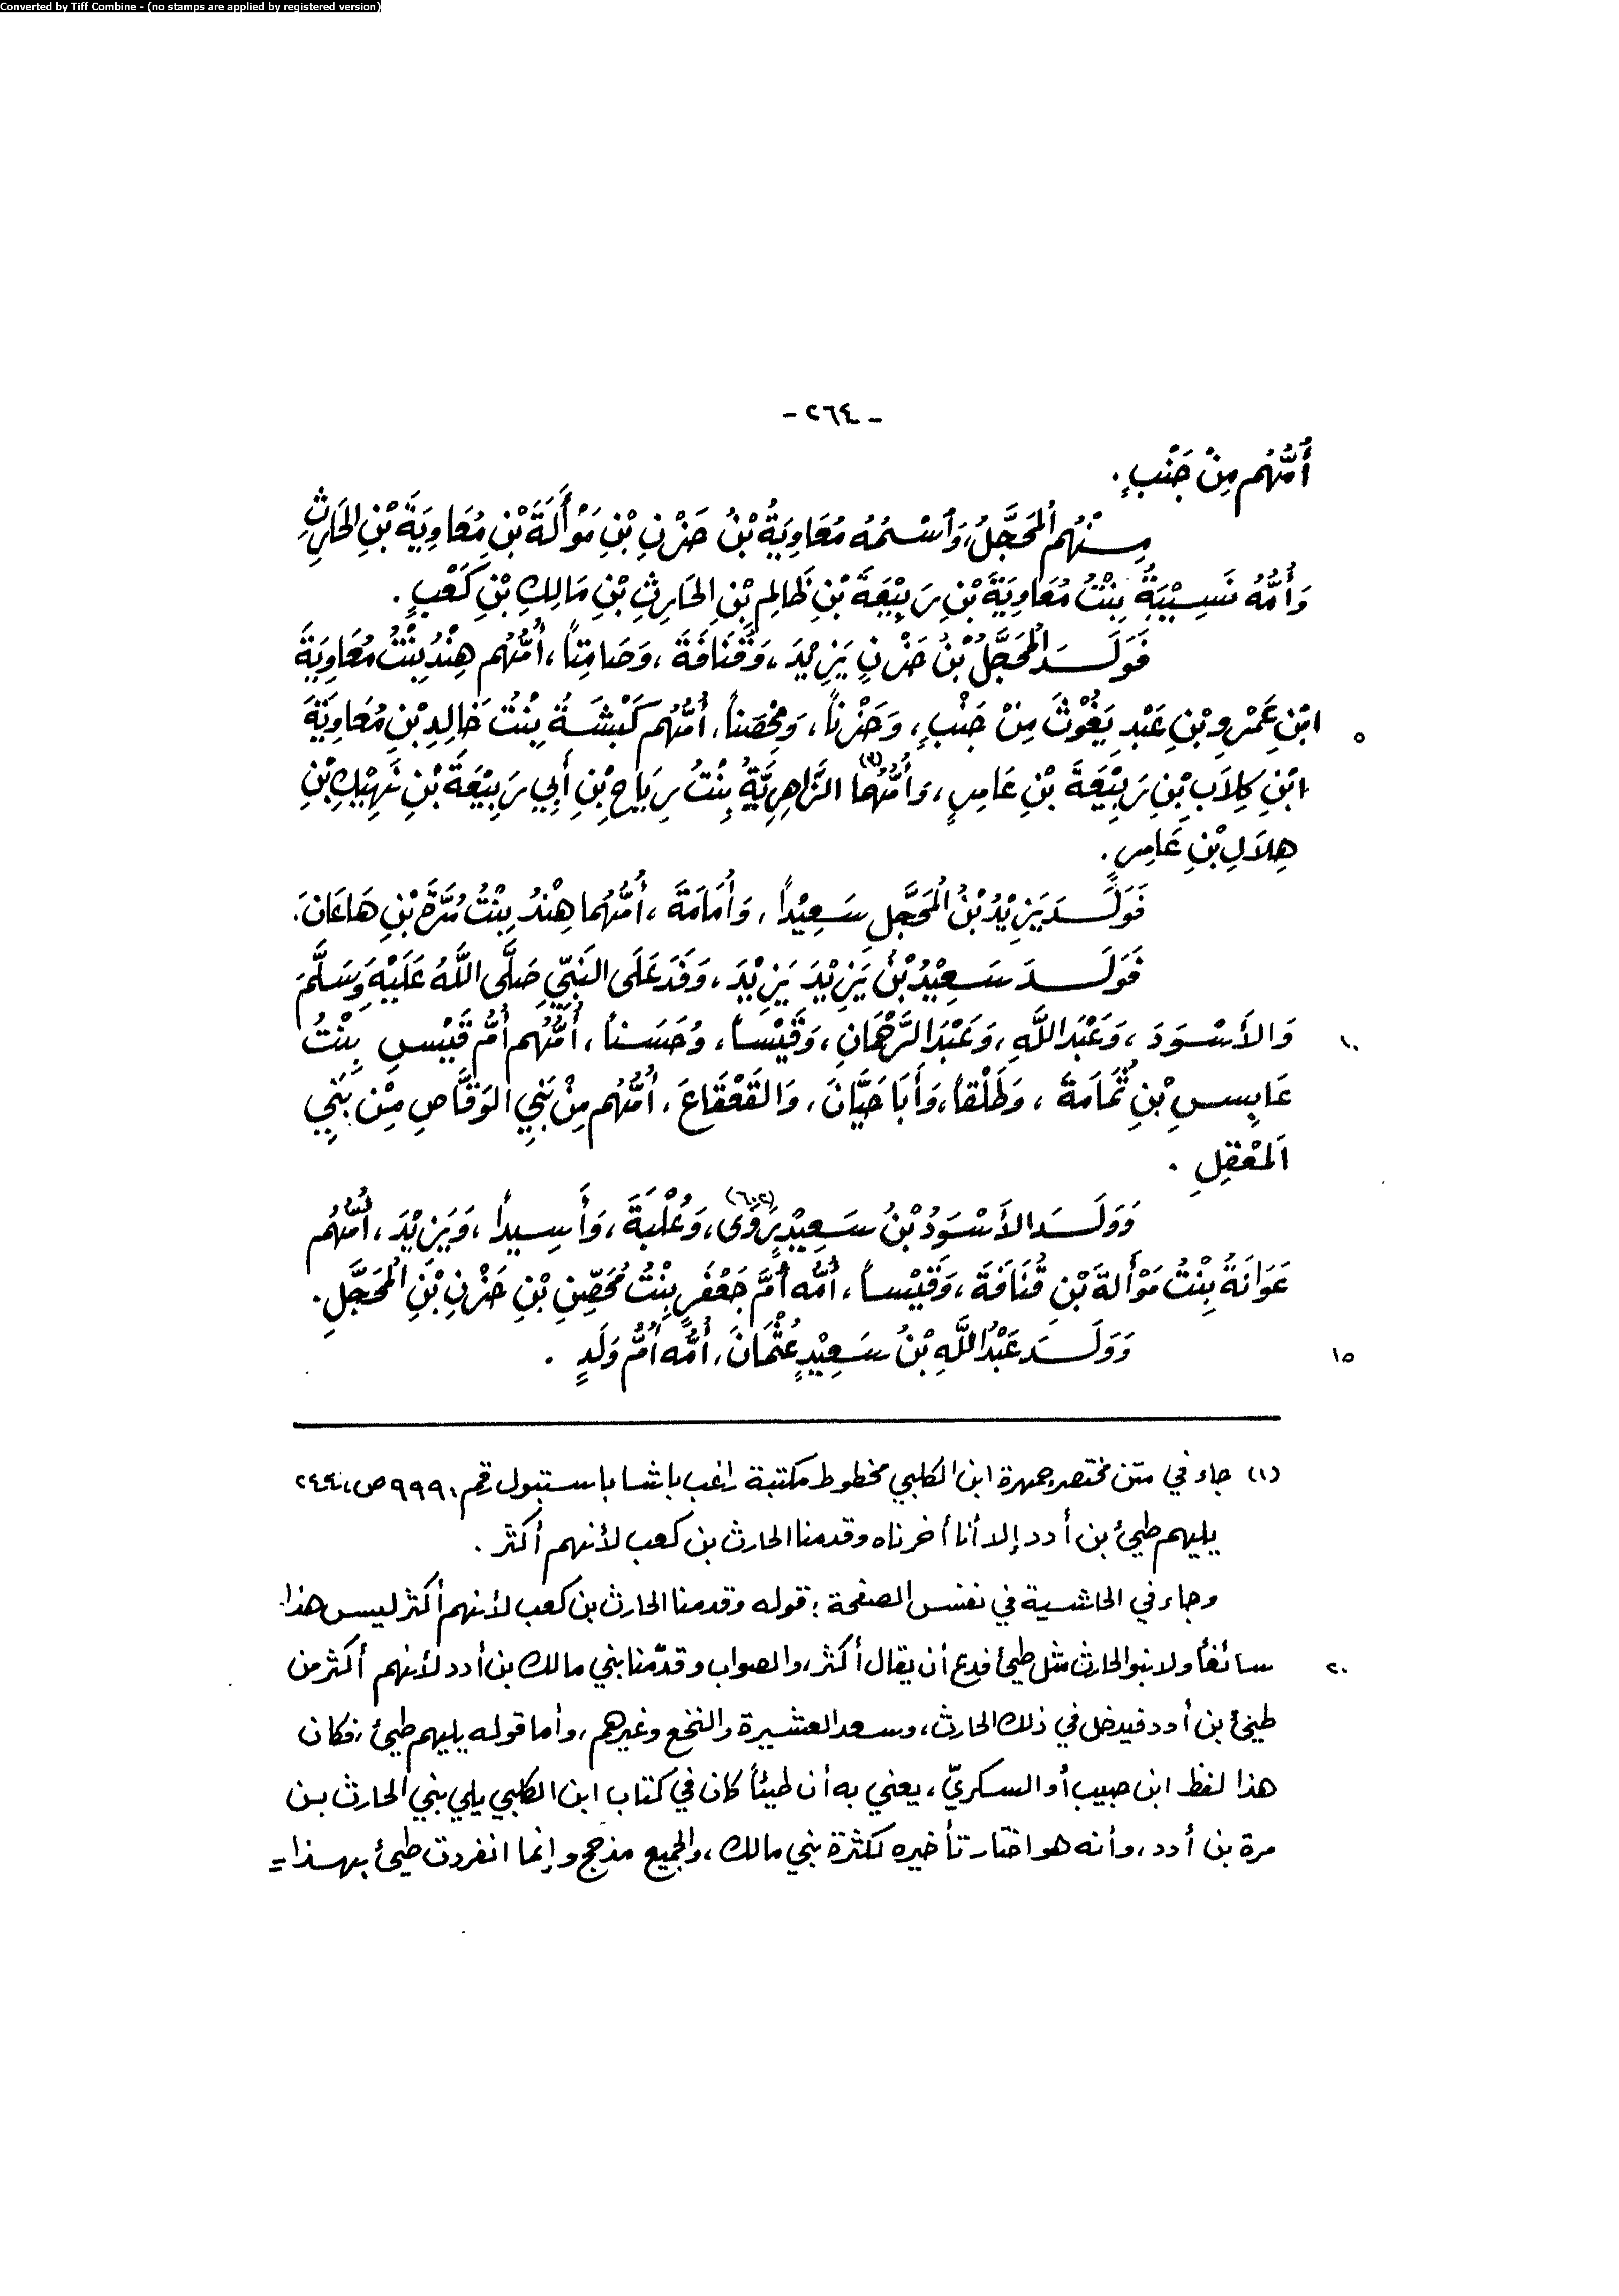 Converted by Tiff Combine - (no stamps are applied by registered version)
- ٢٦٤ -
أُمُّهُم مِنْ جَنْبٍ .
مِنْهُم المُحَجَّلُ، وَٱسْمُهُ مُعَاوِيَةُ بْنُ حَزْنِ بْنِ مَوْأَلَةَ بْنِ مُعَاوِيَةَ بْنِ الحَارِثِ
وَأُمُّهُ نَسِيْبَةُ بِنْتُ مُعَاوِيَةَ بْنِ رَبِيْعَةَ بْنِ ظَالِمِ بْنِ الحَارِثِ بْنِ مَالِكِ بْنِ كَعْبٍ .
فَوَلَدَ المُحَجَّلُ بْنُ حَزْنٍ يَزِيْدَ، وَقُنَافَةَ، وَصَامِتاً، أُمُّهُم هِنْدُ بِنْتُ مُعَاوِيَةَ
ابْنِ عَمْرِو بْنِ عَبْدِ يَغُوْثَ مِنْ جَنْبٍ، وَحَزْناً، وَمُحْصَناً، أُمُّهُم كَبْشَةُ بِنْتُ خَالِدِ بْنِ مُعَاوِيَةَ
٥
ابْنِ كِلاَبِ بْنِ رَبِيْعَةَ بْنِ عَامِرٍ، وَأُمُّهُمَا الزَّاهِرِيَّةُ بِنْتُ رِيَاحِ بْنِ أَبِي رَبِيْعَةَ بْنِ نَهِيْكِ بْنِ
هِلاَلِ بْنِ عَامِرٍ .
فَوَلَدَ يَزِيْدُ بْنُ المُحَجَّلِ سَعِيْداً، وَأُمَامَةَ، أُمُّهُمَا هِنْدُ بِنْتُ مُرَّةَ بْنِ هَاعَانَ.
فَوَلَدَ سَعِيْدُ بْنُ يَزِيْدَ يَزِيْدَ، وَفَدَ عَلَى النَبِيِّ صَلَّى اللَّهُ عَلَيْهِ وَسَلَّمَ
وَالأَسْوَدَ، وَعَبْدَ اللَّهِ، وَعَبْدَ الرَّحْمَانِ، وَقَيْساً، وَحَسَناً، أُمُّهُم أُمُّ قَيْسٍ بِنْتُ
١٠
عَابِسِ بْنِ ثُمَامَةَ، وَطَلْقاً، وَأَبَا حَيَّانَ، وَالقَعْقَاعَ، أُمُّهُم مِنْ بَنِي الوَقَّاصِ مِنْ بَنِي
المَعْقِلِ .
وَوَلَدَ الأَسْوَدُ بْنُ سَعِيْدٍ رَوَى، وَعُلْبَةَ، وَأَسِيداً، وَيَزِيْدَ، أُمُّهُم
عَوَانَةُ بِنْتُ مَوْأَلَةَ بْنِ قُنَافَةَ، وَقَيْساً، أُمُّه أُمُّ جَعْفَرٍ بِنْتُ مُحَصِّنِ بْنِ حَزْنِ بْنِ المُحَجَّلِ.
وَوَلَدَ عَبْدُ اللَّهِ بْنُ سَعِيْدٍ عُثْمَانَ، أُمُّه أُمُّ وَلَدٍ .
١٥
(١) جاء في متن مختصر جمهرة ابن الكلبي مخطوط مكتبة راغب باشا باستبول رقم: ٩٩٩ ص:
يليهم طيئ بن أدد إلا أنا أخرناه وقدمنا الحارث بن كعب لأنهم أكثر .
وجاء في الحاشية في نفس الصفحة : قوله وقدمنا الحارث بن كعب لأنهم أكثر ليس هذا
سائغاً ولا بنو الحارث مثل طيئ فدع أن يقال أكثر، والصواب وقدّمنا بني مالك بن أدد لأنهم أكثر من
٢٠
طيئ بن أدد فيدخل في ذلك الحارث، وسعد العشيرة والنخع وغيرهم، وأما قوله يليهم طيئ، فكان
هذا لفظ ابن حبيب أو السكريّ، يعني به أن طيئاً كان في كتاب ابن الكلبي يلي بني الحارث بن
مرة بن أدد، وأنه هو اختار تأخيره لكثرة بني مالك، والجميع مذحج وإنما انفردت طيئ بهذا =